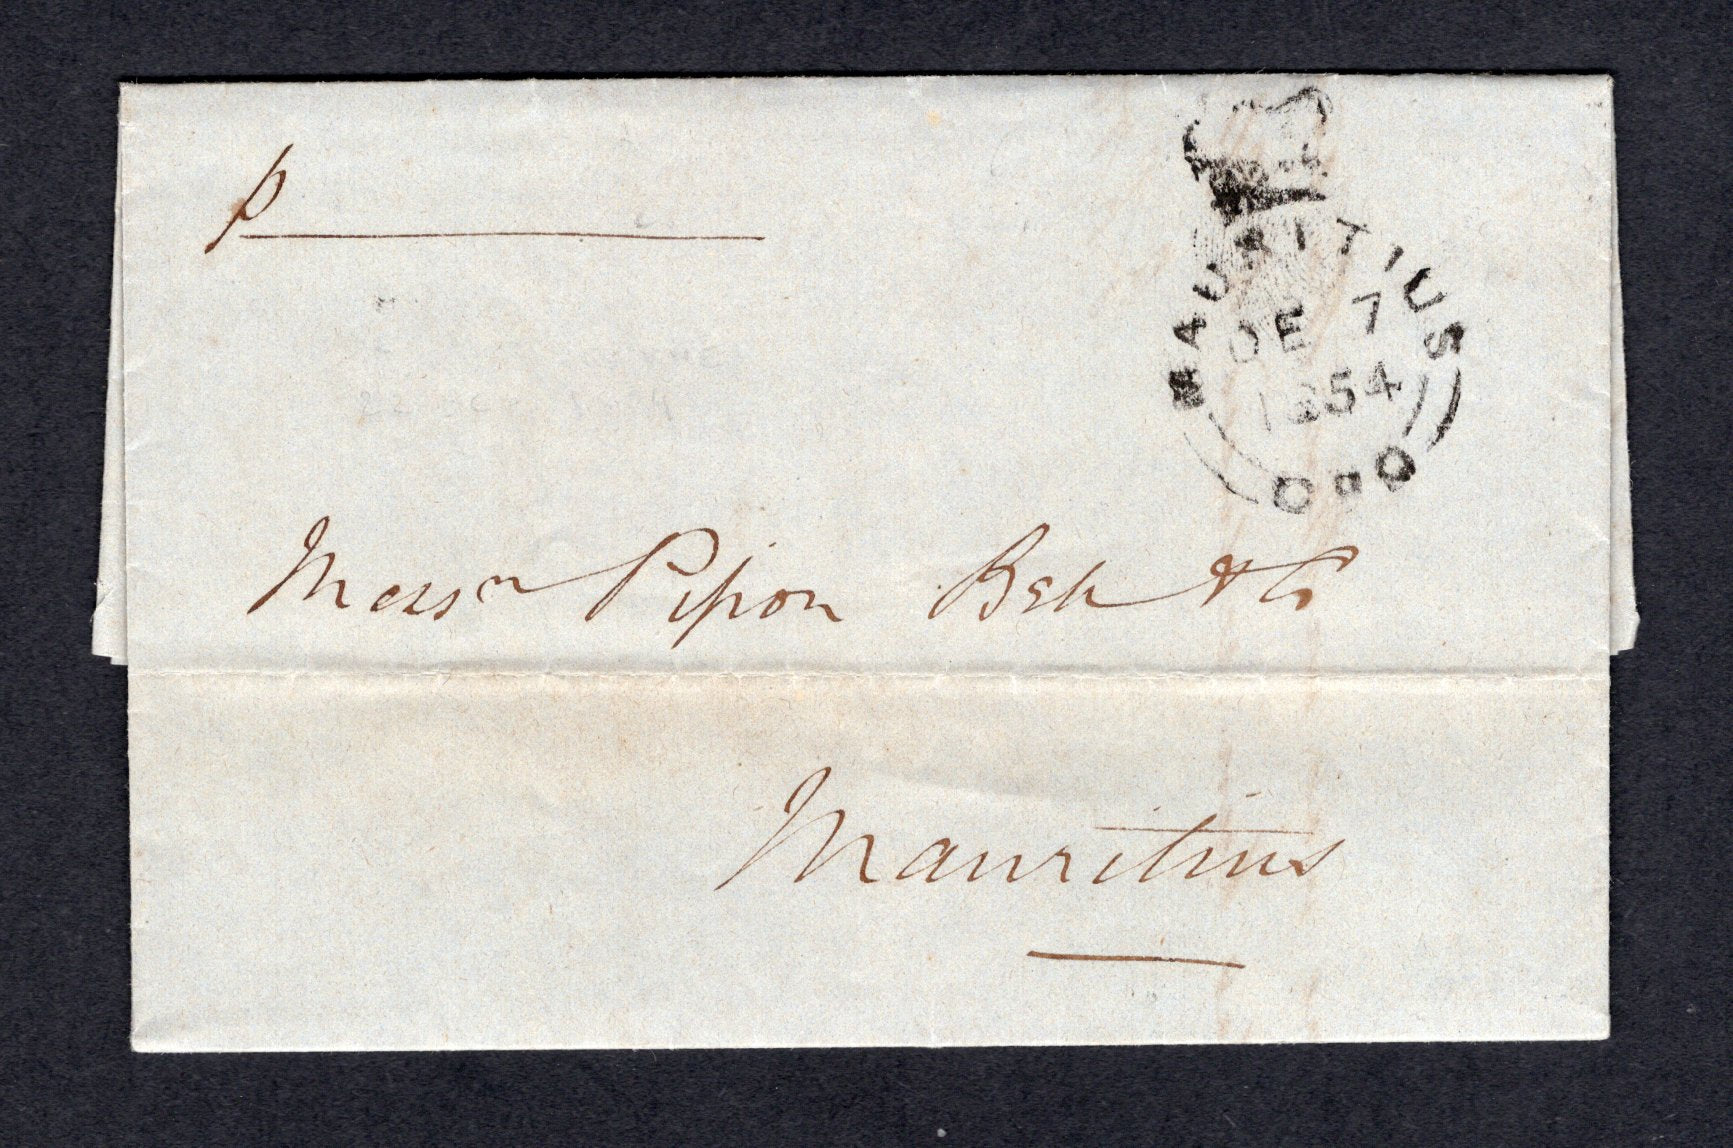 p
MAURITIUS
DE 7
1854
GPO
Messrs Pipon Bell & Co
Mauritius